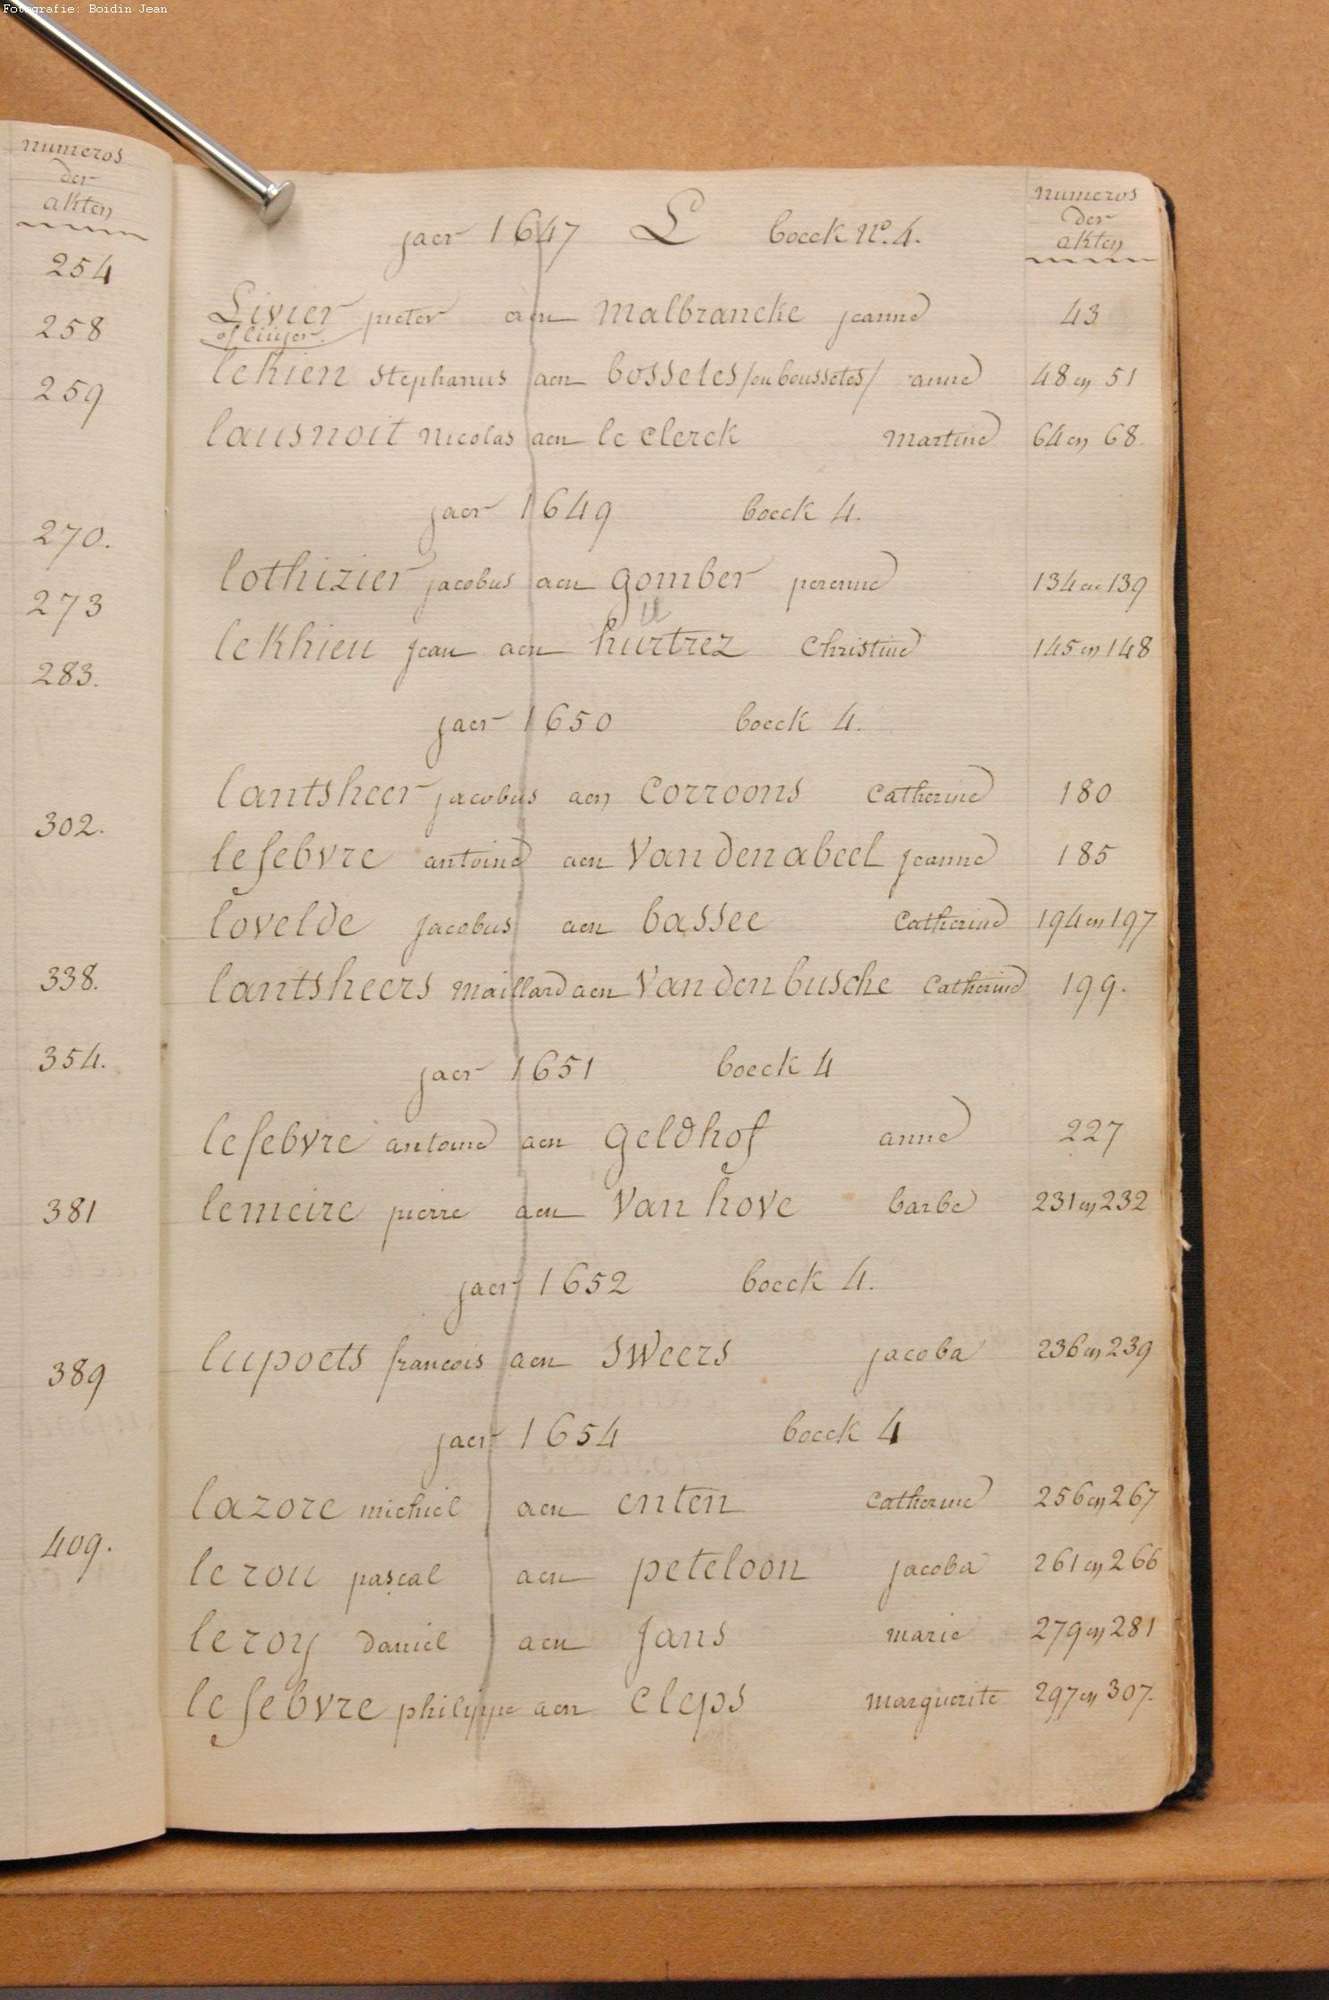 Fotografie: Boidin Jean
numeros
der
akten
254
258
259
270.
273
283.
302.
338.
354.
381
389
409.
numeros
der
akten
jaer 1647 L boeck nº. 4.
Livier pieter aen Malbrancke jeanne 43
of
lekien stephanus aen bosseles /ou bousseles/ anne 48 en 51
lausnoit nicolas aen le clerck martine 64 en 68
jaer 1649 boeck 4.
lothizier jacobus aen gomber perenne 134 en 139
u
lekhieu jean aen hurtrez christine 145 en 148
jaer 1650 boeck 4.
lantsheer jacobus aen corroons catherine 180
lefebvre antoine aen Vandenabeel jeanne 185
lovelde jacobus aen bassee catherine 194 en 197
lantsheers maillard aen Vandenbusche catherine 199.
jaer 1651 boeck 4
lefebvre antoine aen geldhof anne 227
lemeire pierre aen Van hove barbe 231 en 232
jaer 1652 boeck 4.
lupoets francois aen sweers jacoba 236 en 239
jaer 1654 boeck 4
lazore michiel aen enten catherine 256 en 267
le rou pascal aen peteloon jacoba 261 en 266
le roy daniel aen jans marie 279 en 281
lefebvre philippe aen cleps marguerite 297 en 307.